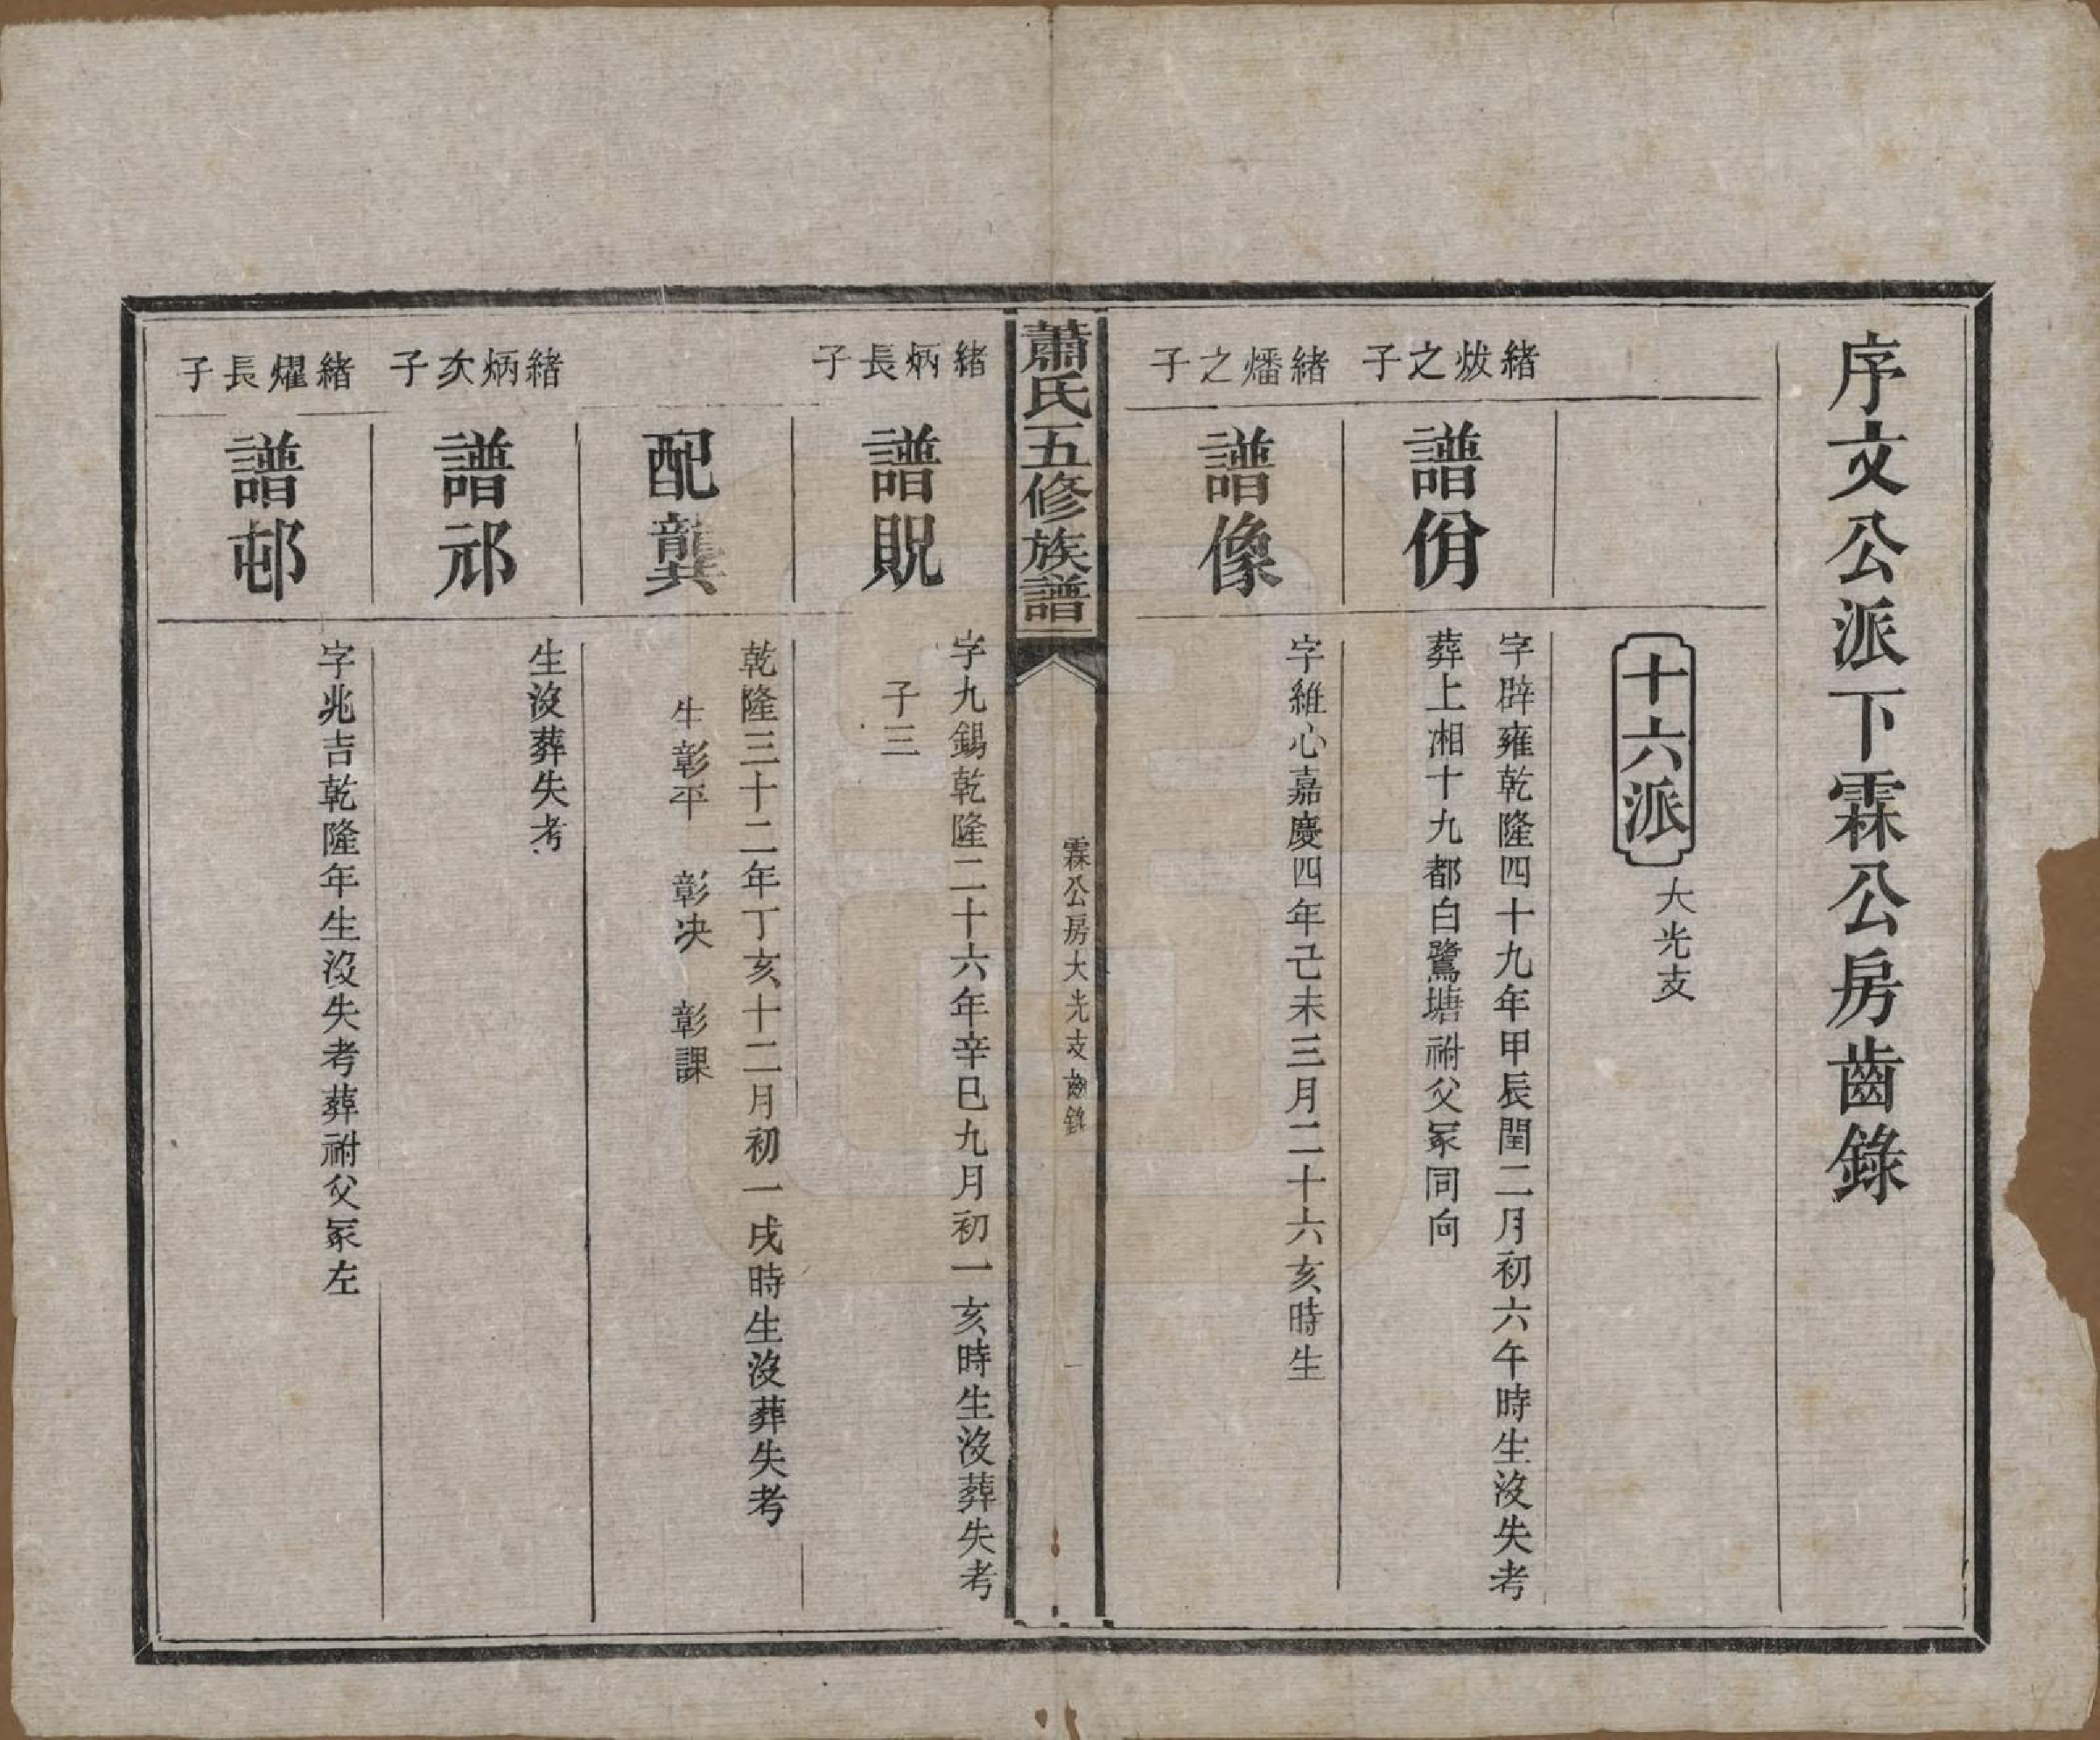 序文公派下霖公房齒錄
十六派
大光支
緒炦之子
譜佾
字辟雍乾隆四十九年甲辰閏二月初六午時生沒失考
葬上湘十九都白鷺塘祔父冢同向
緒燔之子
譜像
字維心嘉慶四年己未三月二十六亥時生
蕭氏五修族譜
霖公房大光支齒錄
一
緒炳長子
譜貺
字九錫乾隆二十六年辛巳九月初一亥時生沒葬失考
子三
配龔
乾隆三十二年丁亥十二月初一戌時生沒葬失考
生彰平 彰决 彰課
緒炳次子
譜祁
生沒葬失考
緒燿長子
譜邨
字兆吉乾隆年生沒失考葬祔父冢左